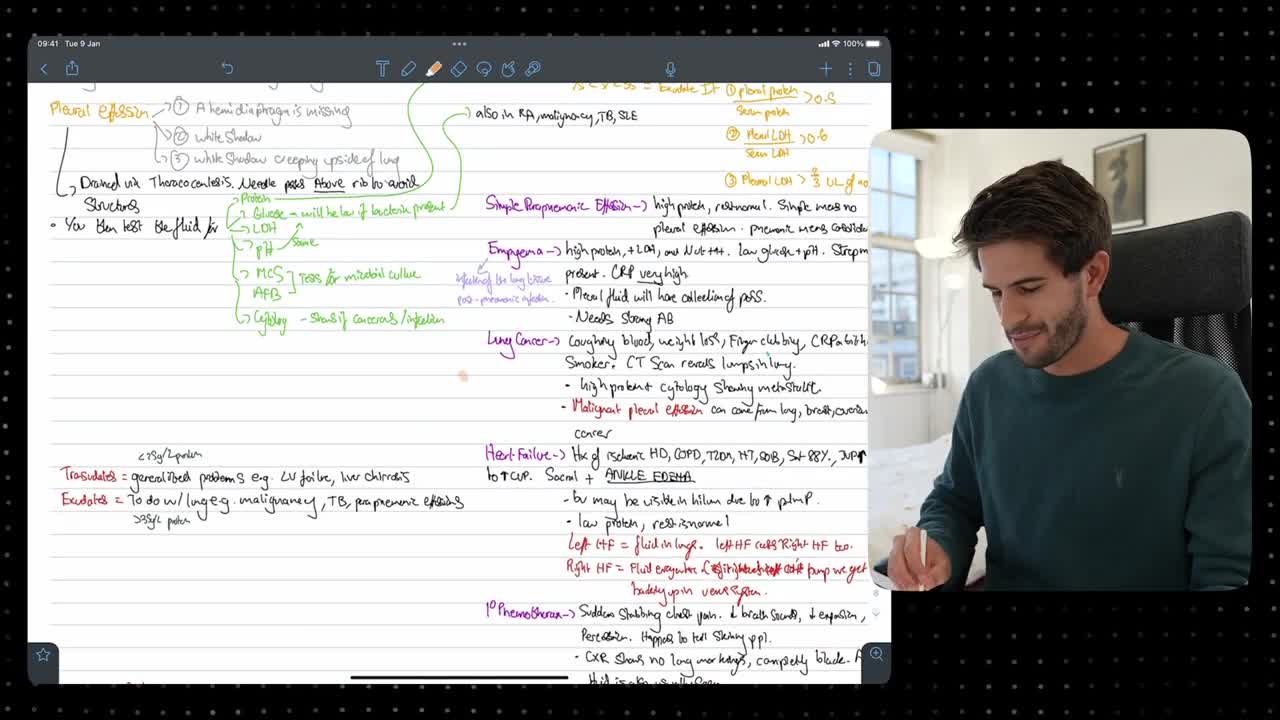 09:41 Tue 9 Jan
100%
Pleural effusion → ① A hemidiaphragm is missing
② white Shadow
③ white Shadow creeping up side of lung
→ Drained via Thoracocentesis. Needle passes Above rib to avoid
Structures
• You then test the fluid for
→ Protein
→ Glucose → will be low if bacteria present
→ LDH
→ pH Same
→ MCS
AFB
Tests for microbial culture
→ Cytology - Shows if cancerous/infection
→ also in RA, malignancy, TB, SLE
= Exudate If ① pleural protein > 0.5
Serum protein
② Pleural LDH > 0.6
Serum LDH
③ Pleural LDH > 2/3 UL of
Simple Parapneumonic Effusion → high protein, rest normal. Simple means no
pleural effusion. pneumonic means
Empyema → high protein, + LDH, and Nut ++. Low glucose + pH.
present. CRP very high
infection of the lung tissue
post-pneumonic infection.
• Pleural fluid will have collection of pass.
• Needs Strong AB
Lung Cancer → Coughing blood, weight loss, Finger clubbing,
Smoker. CT Scan reveals lumps in lung.
• high protein + cytology Showing metastatic.
• Malignant pleural effusion can come from lung, breast, ovarian
cancer
Heart Failure → Hx of ischaemic HD, COPD, T2DM, HT, SOB, Sat 88%, JVP↑
to ↑ CVP. Sacral + ANKLE EDEMA
- bv may be visible in hilum due to ↑ pulm P.
- low protein, rest is normal
Left HF = fluid in lungs. left HF causes Right HF too.
Right HF = Fluid everywhere pump we get
backup in venous system.
<25g/L protein
Transudates = generalised problems e.g. LV failure, liver chirosis
Exudates = To do w/ lung e.g. malignancy, TB, parapneumonic effusions
>35g/L protein
1° Pneumothorax → Sudden Stabbing chest pain. ↓ breath sounds, ↓ expansion,
Percussion. Happens to tall Skinny ppl.
• CXR shows no lung markings, completely black.